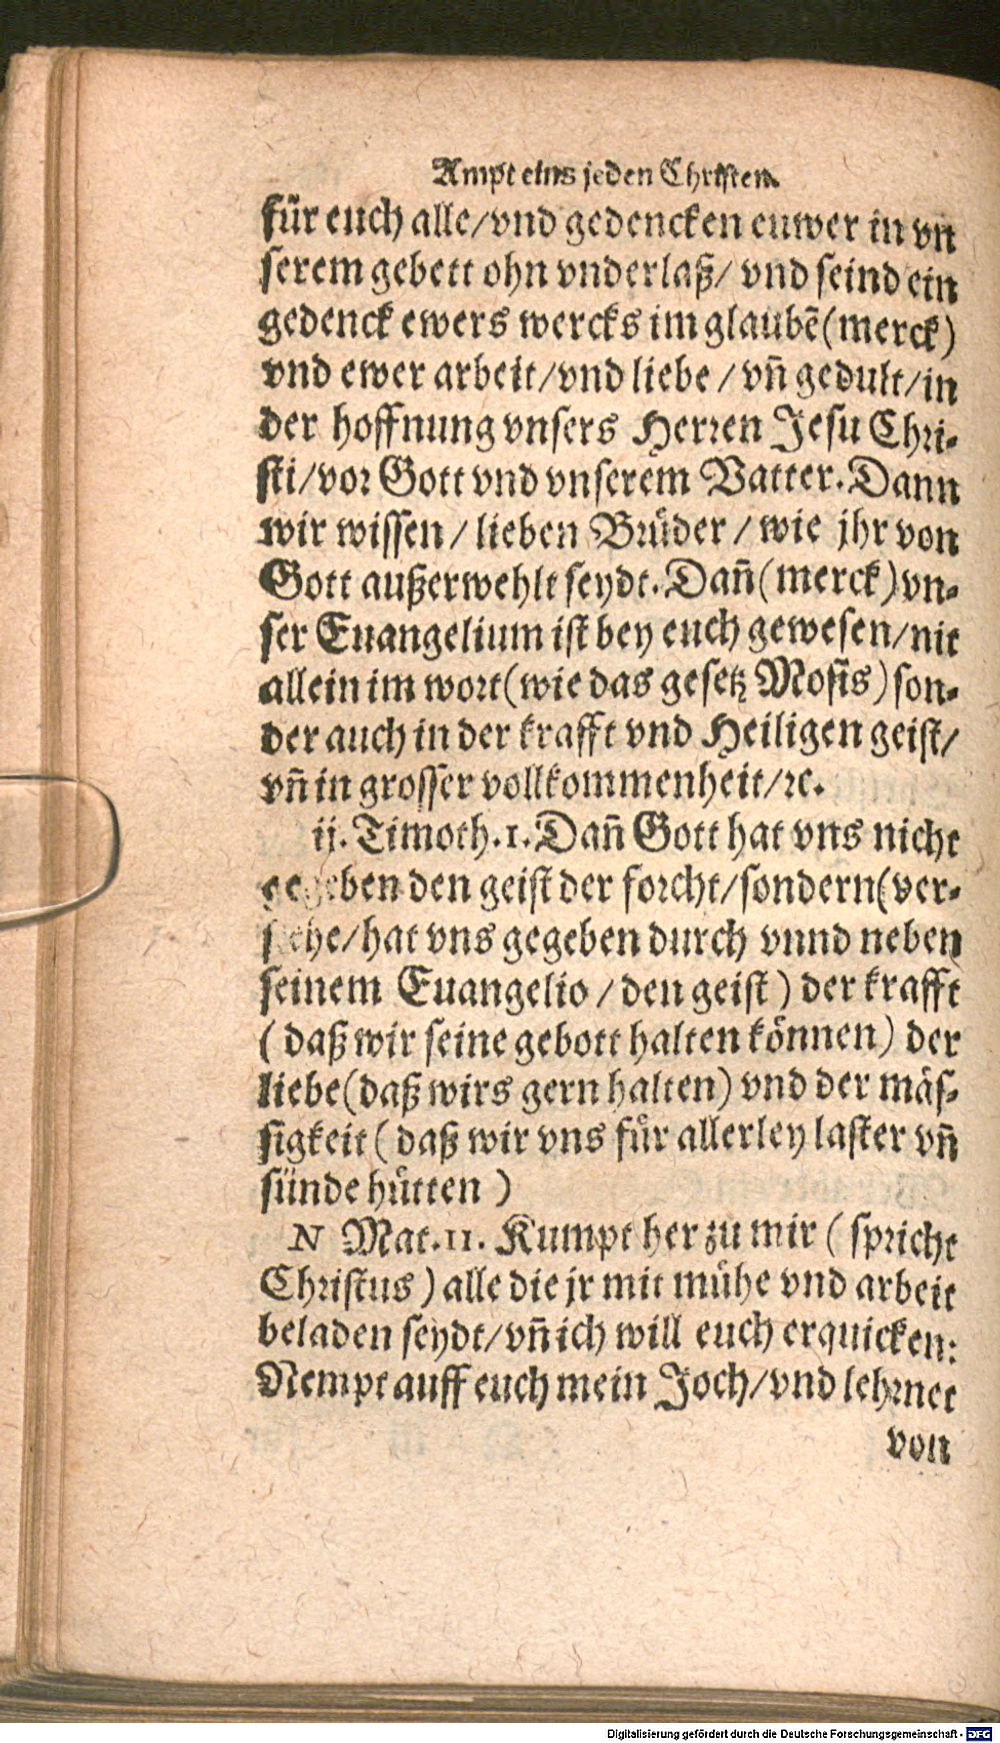 Ampt eins jeden Christen.
für euch alle/vnd gedencken euwer in vn
serem gebett ohn vnderlaß/ vnd seind ein
gedenck ewers wercks im glaubẽ(merck)
vnd ewer arbeit/vnd liebe / vñ gedult/in
der hoffnung vnsers Herren Jesu Chri-
sti/vor Gott vnd vnserem Vatter. Dann
wir wissen / lieben Brüder / wie jhr von
Gott außerwehlt seydt. Dañ(merck)vn-
ser Euangelium ist bey euch gewesen/nit
allein im wort(wie das gesetz Mosis)son-
der auch in der krafft vnd Heiligen geist/
vñ in grosser vollkommenheit/ꝛc.
ij. Timoth.1. Dañ Gott hat vns nicht
gegeben den geist der forcht/sondern(ver-
stehe/hat vns gegeben durch vnnd neben
seinem Euangelio / den geist ) der krafft
( daß wir seine gebott halten können) der
liebe(daß wirs gern halten) vnd der mäs-
sigkeit ( daß wir vns für allerley laster vñ
sünde hütten )
N Mat.11. Kumpt her zu mir ( spricht
Christus ) alle die jr mit mühe vnd arbeit
beladen seydt/vñ ich will euch erquicken:
Nempt auff euch mein Joch/vnd lehrnet
von
Digitalisierung gefördert durch die Deutsche Forschungsgemeinschaft - DFG